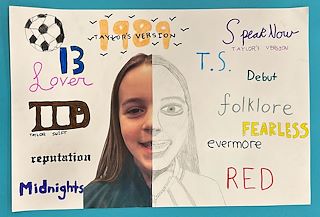 1989
TAYLOR'S VERSION
Speak Now
TAYLOR'S VERSION
13
T.S.
Lover
Debut
folklore
TTPD
TAYLOR SWIFT
FEARLESS
evermore
reputation
RED
Midnights